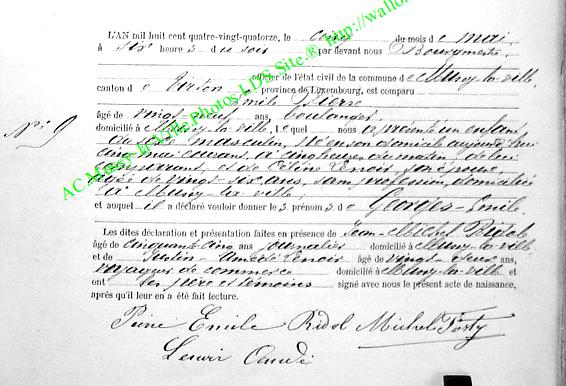 L'AN mil huit cent quatre-vingt-quatorze, le cinq du mois de mai
à six heures du soir par devant nous Bourgmestre
officier de l'état civil de la commune de Mussy-la-ville,
canton de Virton province de Luxembourg, est comparu
Emile Pierre
âgé de vingt-neuf ans, boulanger
domicilié à Mussy-la-ville, lequel nous a présenté un enfant
du sexe masculin, né en son domicile aujourd'hui
cinq mai courant, à cinq heures du matin, de lui
comparant, et de Céline Lenoir, son épouse,
âgée de vingt-six ans, sans profession, domiciliée
à Mussy-la-ville,
et auquel il a déclaré vouloir donner les prénoms de Georges-Emile
Les dites déclaration et présentation faites en présence de Jean-Michel
âgé de cinquante-cinq ans journalier domicilié à Mussy-la-ville
et de Justin-Amédé Lenoir âgé de vingt-deux ans,
voyageur de commerce domicilié à Mussy-la-ville et
ont les père et témoins signé avec nous le présent acte de naissance,
après qu'il leur en a été fait lecture.
N° 9
Emile Michel
Lenoir
AC Mussy-la-Ville Photos LDS Site ® http://wallo